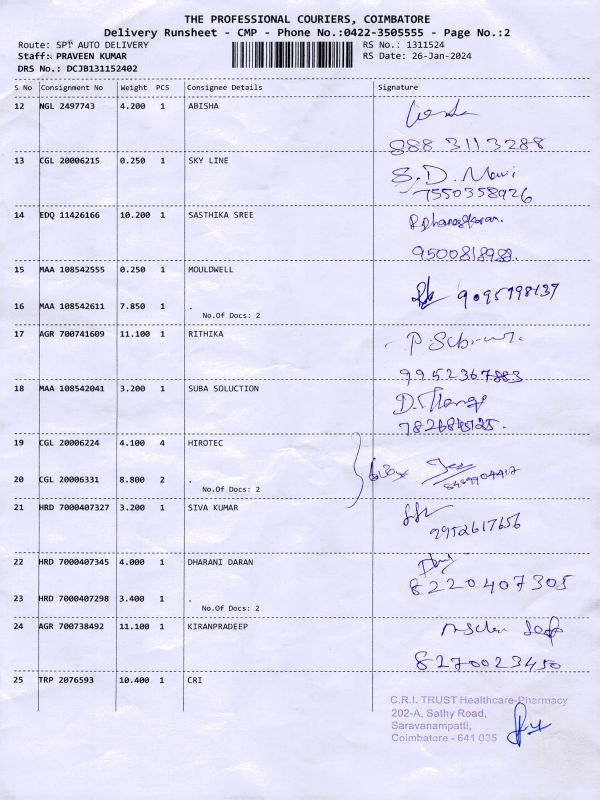 THE PROFESSIONAL COURIERS, COIMBATORE
Delivery Runsheet - CMP - Phone No.:0422-3505555 - Page No.:2
Route: SPT AUTO DELIVERY RS No.: 1311524
Staff: PRAVEEN KUMAR RS Date: 26-Jan-2024
DRS No.: DCJB131152402
S No Consignment No Weight PCS Consignee Details Signature
12 NGL 2497743 4.200 1 ABISHA
888 3113288
13 CGL 20006215 0.250 1 SKY LINE
S.D. Mani
7550358926
14 EDQ 11426166 10.200 1 SASTHIKA SREE
15 MAA 108542555 0.250 1 MOULDWELL
16 MAA 108542611 7.850 1 .
No.Of Docs: 2
17 AGR 700741609 11.100 1 RITHIKA
9952367883
18 MAA 108542041 3.200 1 SUBA SOLUCTION
19 CGL 20006224 4.100 4 HIROTEC
20 CGL 20006331 8.800 2 .
No.Of Docs: 2
21 HRD 7000407327 3.200 1 SIVA KUMAR
9952617656
22 HRD 7000407345 4.000 1 DHARANI DARAN
8220407305
23 HRD 7000407298 3.400 1 .
No.Of Docs: 2
24 AGR 700738492 11.100 1 KIRANPRADEEP
8270023450
25 TRP 2076593 10.400 1 CRI
C.R.I. TRUST Healthcare-Pharmacy
202-A, Sathy Road,
Saravanampatti,
Coimbatore - 641 035